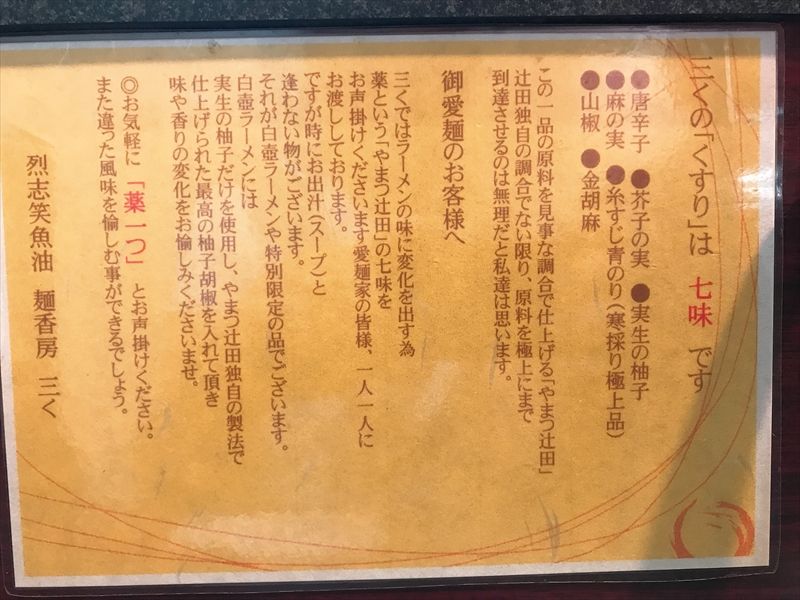 三くの「くすり」は 七味 です
●唐辛子 ●芥子の実 ●実生の柚子
●麻の実 ●糸すじ青のり(寒採り極上品)
●山椒 ●金胡麻
この一品の原料を見事な調合で仕上げる「やまつ辻田」
辻田独自の調合でない限り、原料を極上にまで
到達させるのは無理だと私達は思います。
御愛麺のお客様へ
三くではラーメンの味に変化を出す為
薬という「やまつ辻田」の七味を
お声掛けくださいます愛麺家の皆様、一人一人に
お渡ししております。
ですが時にお出汁(スープ)と
逢わない物がございます。
それが白壺ラーメンや特別限定の品でございます。
白壺ラーメンには
実生の柚子だけを使用し、やまつ辻田独自の製法で
仕上げられた最高の柚子胡椒を入れて頂き
味や香りの変化をお愉しみくださいませ。
◎お気軽に 「薬一つ」 とお声掛けください。
また違った風味を愉しむ事ができるでしょう。
烈志笑魚油 麺香房 三く